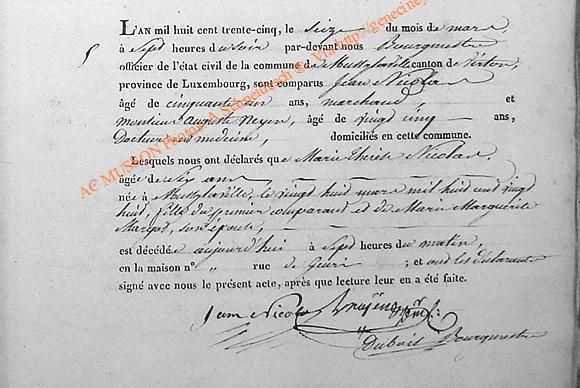 L'AN mil huit cent trente-cinq, le Seize du mois de mars
5
à Sept heures du soir par-devant nous Bourguemestre
officier de l'état civil de la commune de Mussylaville canton de Virton,
province de Luxembourg, sont comparus Jean Nicolas
âgé de cinquante un ans, marchand, et
monsieur Auguste Neyen, âgé de vingt cinq ans,
Docteur en médecine, domiciliés en cette commune.
Lesquels nous ont déclarés que Marie Thérèse Nicolas,
âgée de Six ans
née à Mussylaville, le vingt huit mars mil huit cent vingt
huit, fille du premier comparant et de Marie Marguerite
Margot, son épouse,
est décédée aujourd'hui à Sept heures du matin,
en la maison n° " rue de ; et ont les déclarants
signé avec nous le présent acte, après que lecture leur en a été faite.
Jean Nicolas
Dubois Bourguemestre
AC MUSSON Photos A Schneblach © - Via http://geneciney